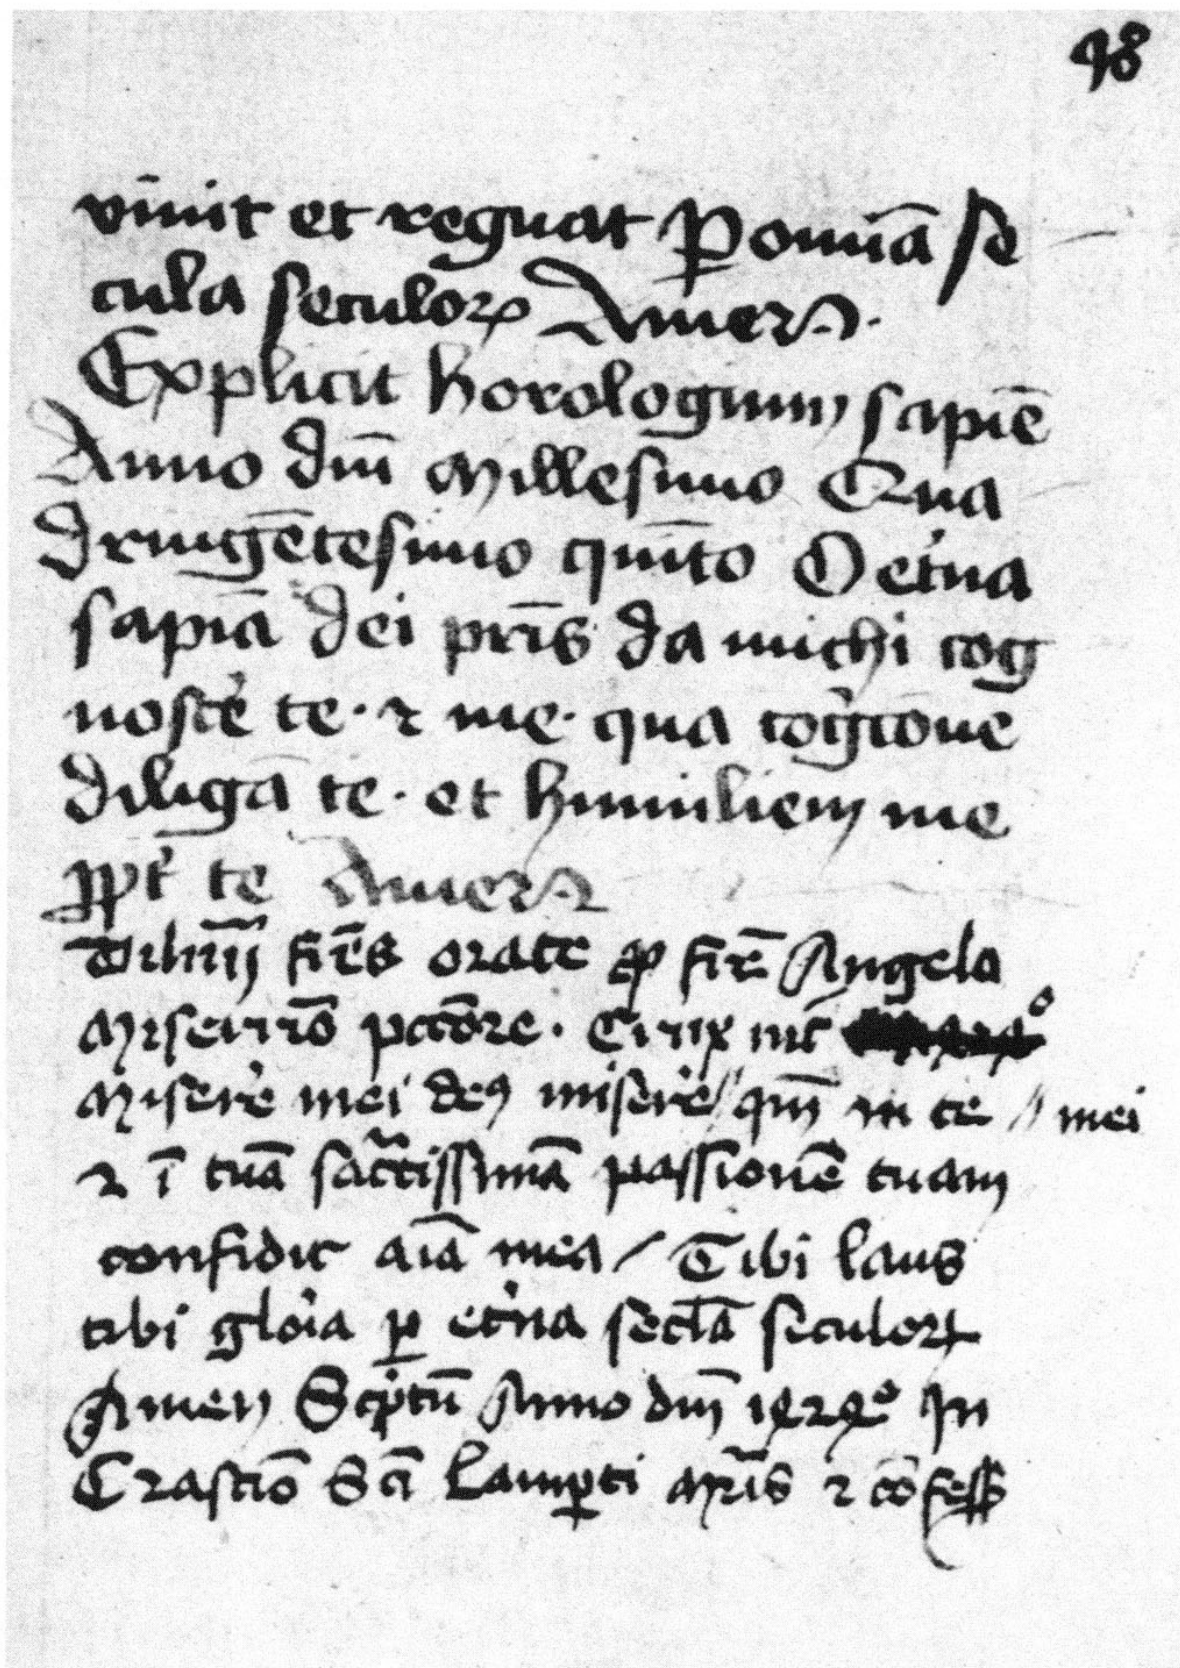 98
viuit et regnat ꝑ omīa se
cula seculoꝝ Amen.
Explicit horologium sapiē
Anno dn̄i Millesimo Qua
dringētesimo quīto O et̓na
sapīa dei pr̄is da michi cog
nosce̓ te · ⁊ me · qua cog̓cōne
diligā te · et humiliem me
ꝓpt̓ te Amen
fr̄es orate ꝓ fr̄e Angelo
Miserrīo pctōre .
Misere̓ mei deꝰ misere̓ // qm̄ in te // mei
⁊ ī tuā sāctissimā passionē tuam
confidit aīa mea / Tibi laus
tibi glo̓ia ꝑ et̓na sec̄la seculoꝝ
Amen Sc̓ptū Anno dn̄i 1424° In
Crastīo Sc̄i Lamꝑti mr̄is ⁊ cōfess